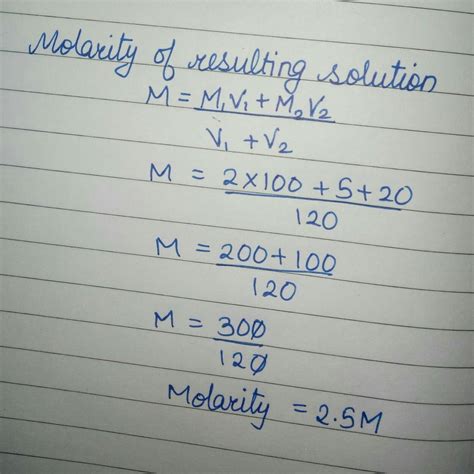 Molarity of resulting solution
M = M₁V₁ + M₂V₂
V₁ + V₂
M = 2×100 + 5+20
120
M = 200+100
120
M = 300
120
Molarity = 2.5M